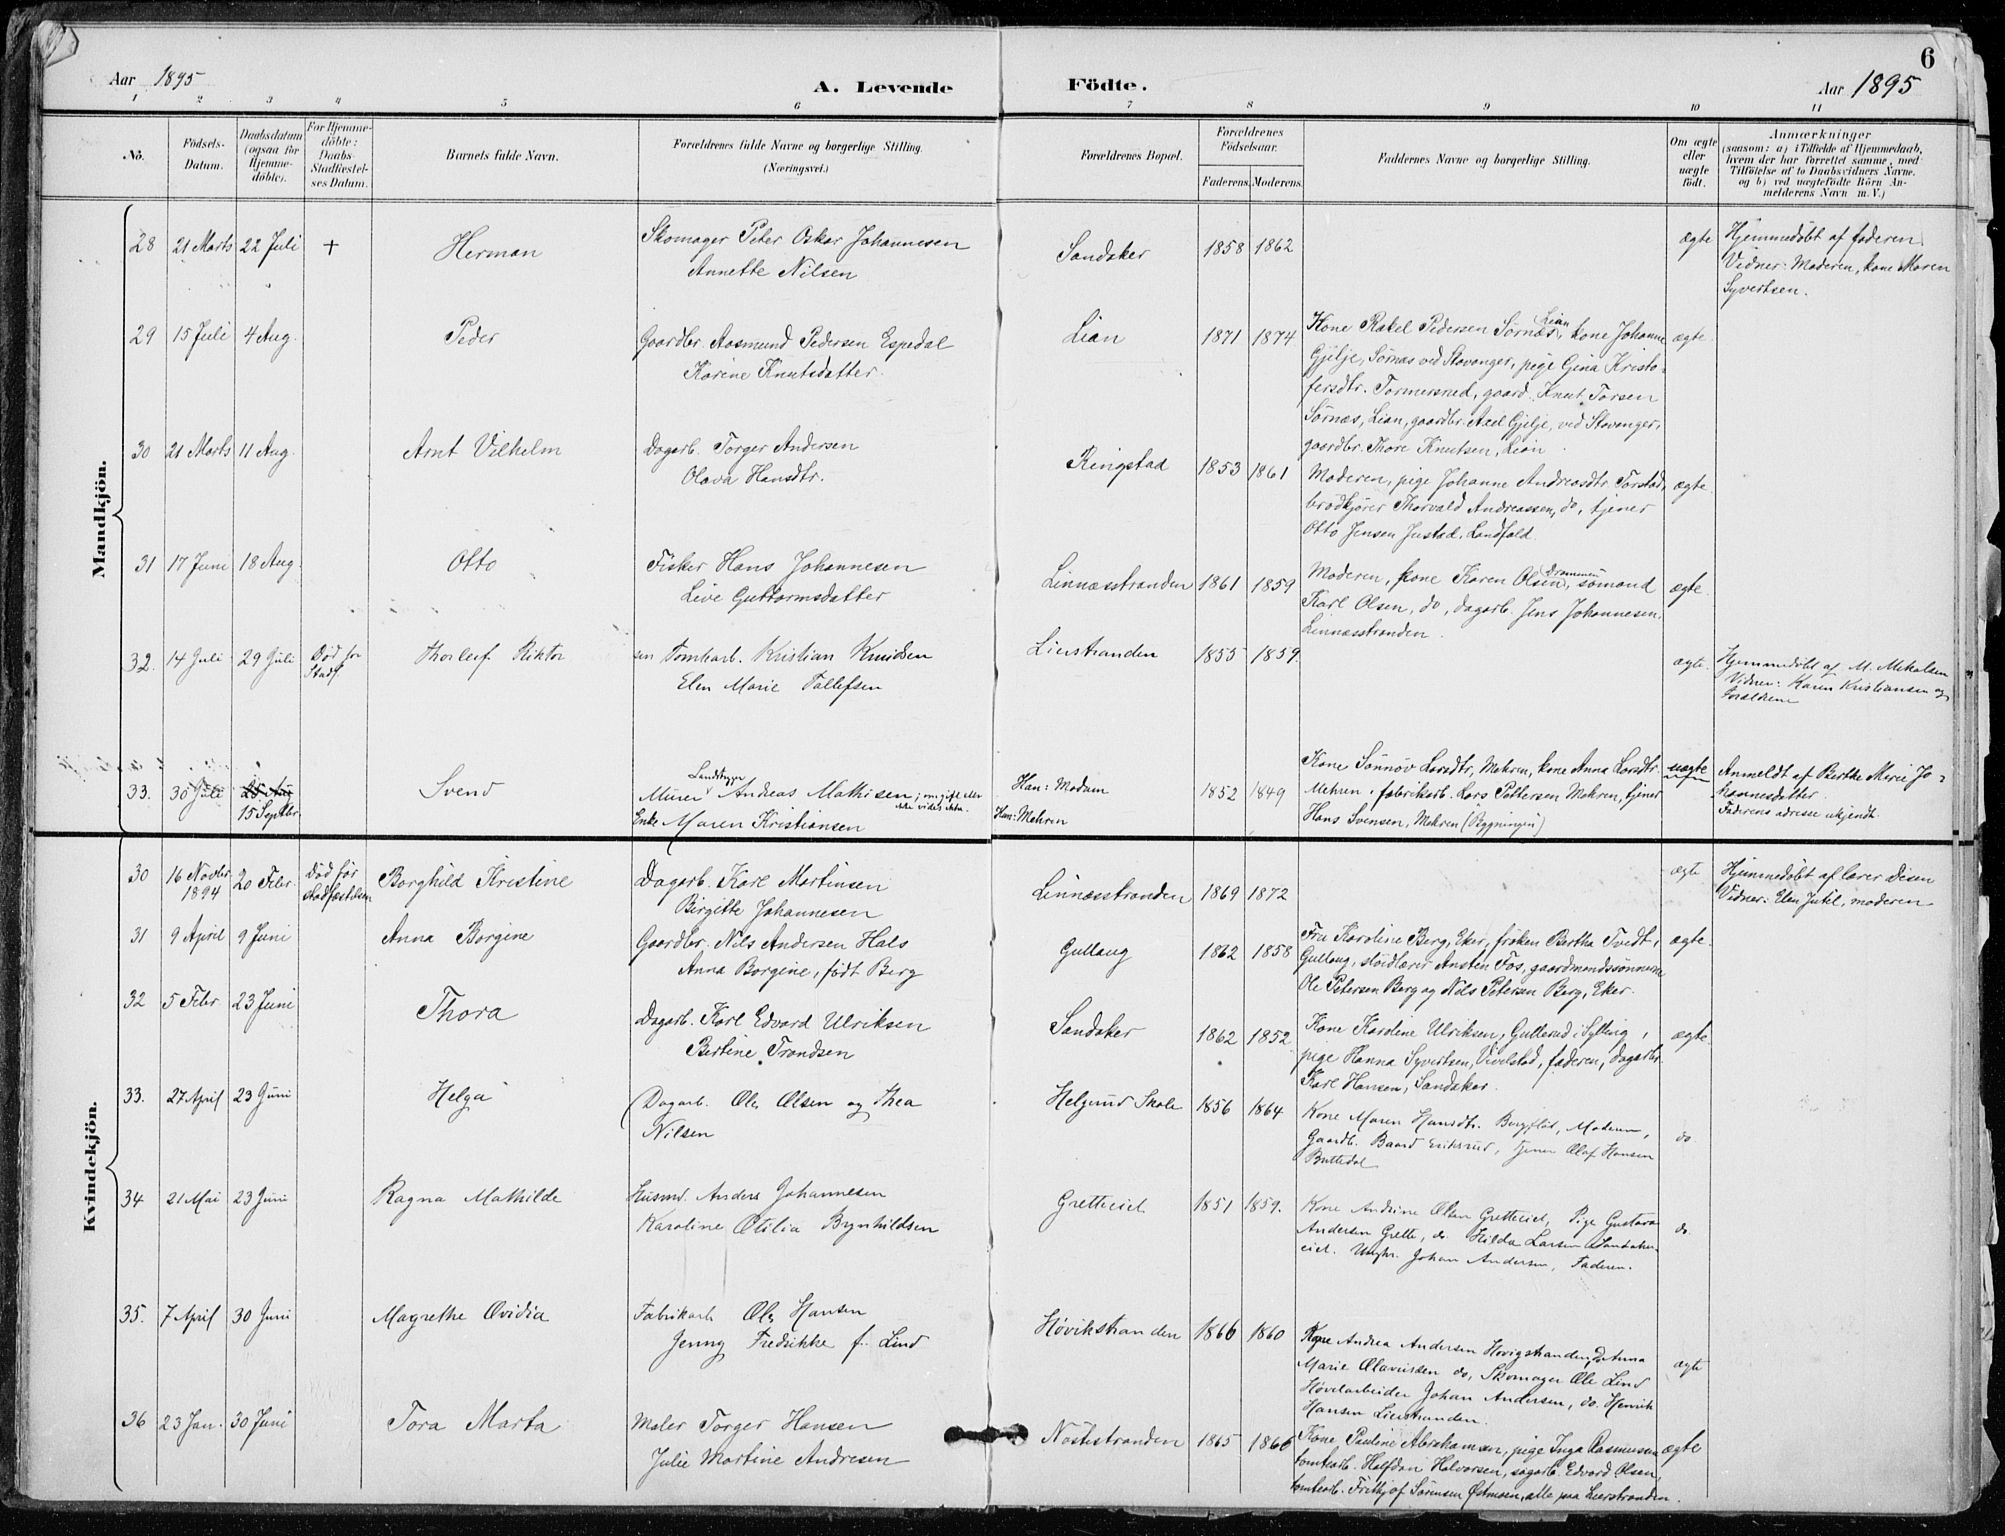 6
Aar 1895
A. Levende Födte.
Aar 1895
1 2 3 4 5 6 7 8 9 10 11
No.
Födsels-Datum.
Daabsdatum (ogsaa for Hjemme-döbte).
For Hjemme-döbte: Daabs-Stadfæstel-ses Datum.
Barnets fulde Navn.
Forældrenes fulde Navne og borgerlige Stilling.
(Næringsvei.)
Forældrenes Bopæl.
Forældrenes Födselsaar.
Faderens. Moderens.
Faddernes Navne og borgerlige Stilling.
Om ægte eller uægte födt.
Anmærkninger
(saasom: a) i Tilfælde af Hjemmedaab,
hvem der har forrettet samme, med
Tilföielse af to Daabsvidners Navne.
og b) ved uægtefödte Börn An-
melderens Navn m. V.)
Mandkjön.
28 21 Marts 22 Juli + Herman
Skomager Peter Oskar Johannesen
Annette Nilsen
Sandaker 1858 1862 ægte
Hjemmedøbt af faderen.
Vidner: Moderen, kone Maren
Syvertsen.
29 15 Juli 4 Aug. Peder
Gaardbr. Aasmund Pedersen Espedal
Karine Knutsdatter
Lian 1871 1874
Kone Rakel Pedersen Sørnæs, Lian, kone Johanne
Gjilje, Sørnæs ved Stavanger, pige Gina Kristo-
fersdtr. Tormersrud, gaard. Knut Torsen
Sørnæs, Lian, gaardbr. Axel Gjilje, ved Stavanger,
gaardbr. Thore Knutsen, Lian.
ægte.
30 21 Marts 11 Aug. Arnt Vilhelm
Dagarb. Torger Andersen
Olava Hansdtr.
Ringstad 1853 1861
Moderen, pige Johanne Andreasdtr. Torstad,
brødkjører Thorvald Andreassen, do, tjener
Otto Jensen Justad, Landfald.
ægte.
31 17 Juni 18 Aug. Otto
Fisker Hans Johannesen
Live Guttormsdatter
Linnæsstranden 1861 1859
Moderen, kone Karen Olsen, Drammen, sømand
Karl Olsen, do, dagarb. Jens Johannesen,
Linnæsstranden.
ægte.
32. 14 Juli 29 Juli Død før Stadf. Thorleif Viktor
Tomtearb. Kristian Knudsen
Elen Marie Tallefsen
Lierstranden 1855 1859. ægte.
Hjemmedøbt af M. Mikalsen
Vidner: Karen Kristiansen og
Forældrene
33. 30 Juli 15 Septbr Svend
Murer Andreas Mathisen; om gift eller
ikke vides ikke.
Enke Maren Kristiansen
Han: Modum
Hun: Mehren
1852 1849
Kone Sønnøv Larsdtr, Mehren, kone Anna Larsdtr.
Mehren, fabrikarb. Lars Pettersen Mehren, tjener
Hans Svensen, Mehren (Bygningen)
uægte
Anmeldt af Berthe Marie Jo-
hannesdatter.
Faderens adresse ukjendt.
Kvindekjön.
30 16 Novbr. 1894 20 Febr. Død før stadfæstelsen Borghild Kristine
Dagarb. Karl Martinsen
Birgitte Johannesen
Linnæsstranden 1869 1872 ægte
Hjemmedøbt af lærer Disen
Vidner: Elen Jutil, moderen
31 9 April 9 Juni Anna Borgine
Gaardbr. Nils Andersen Hals
Anna Borgine, født Berg
Gullaug 1862 1858
Fru Karoline Berg, Eker, frøken Bertha Tvedt,
Gullaug, sløidlærer Ansten Fos, gaardmandssønnerne
Ole Petersen Berg og Nils Petersen Berg, Eker.
ægte.
32 5 Febr 23 Juni Thora
Dagarb. Karl Edvard Ulriksen
Bertine Trondsen
Sandaker 1862 1852
Kone Karoline Ulriksen, Gullerud i Sylling,
pige Hanna Syvertsen, Vivelstad, faderen, dagarbr.
Karl Hansen, Sandaker.
ægte.
33. 27 April 23 Juni Helga
Dagarb. Ole Olsen og Thea
Nilsen
Helgerud Skole 1856 1864
Kone Maren Hansdtr. Bergflöt, Moderen,
Gaardb. Baard Eriksrud, Tjener Olaf Hansen
Buttedal
do.
34 21 Mai 23 Juni Ragna Mathilde
Husmd. Anders Johannesen
Karoline Otilia Brynhildsen
Gretteeiet 1851 1859.
Kone Andrine Olsen Gretteeiet, Pige Gustava
Andersen Grette, do Hilda Larsen Sandaker-
eiet. Ungkr. Johan Andersen, Faderen.
do.
35. 7 April 30 Juni Magrethe Ovidia
Fabrikarb Ole Hansen
Jenny Fredrikke f. Lind
Høvikstranden 1866 1860
Kone Andrea Andersen Hovigstranden, Do Anna
Marie Olavesen do, Skomager Ole Lind
Høvelarbeider Johan Andersen, do. Henrik
Hansen Lierstranden.
ægte
36 23 Jan. 30 Juni Tora Marta
Maler Torger Hansen
Julie Martine Andresen
Nøstestranden 1865 1866
Kone Pauline Abrahamsen, pige Inga Rasmussen
tomtearb. Halfdan Halvorsen, sagarb. Edvard Olsen,
tomtearb. Frithjof Sørensen Østmoen, alle paa Lierstranden.
ægte